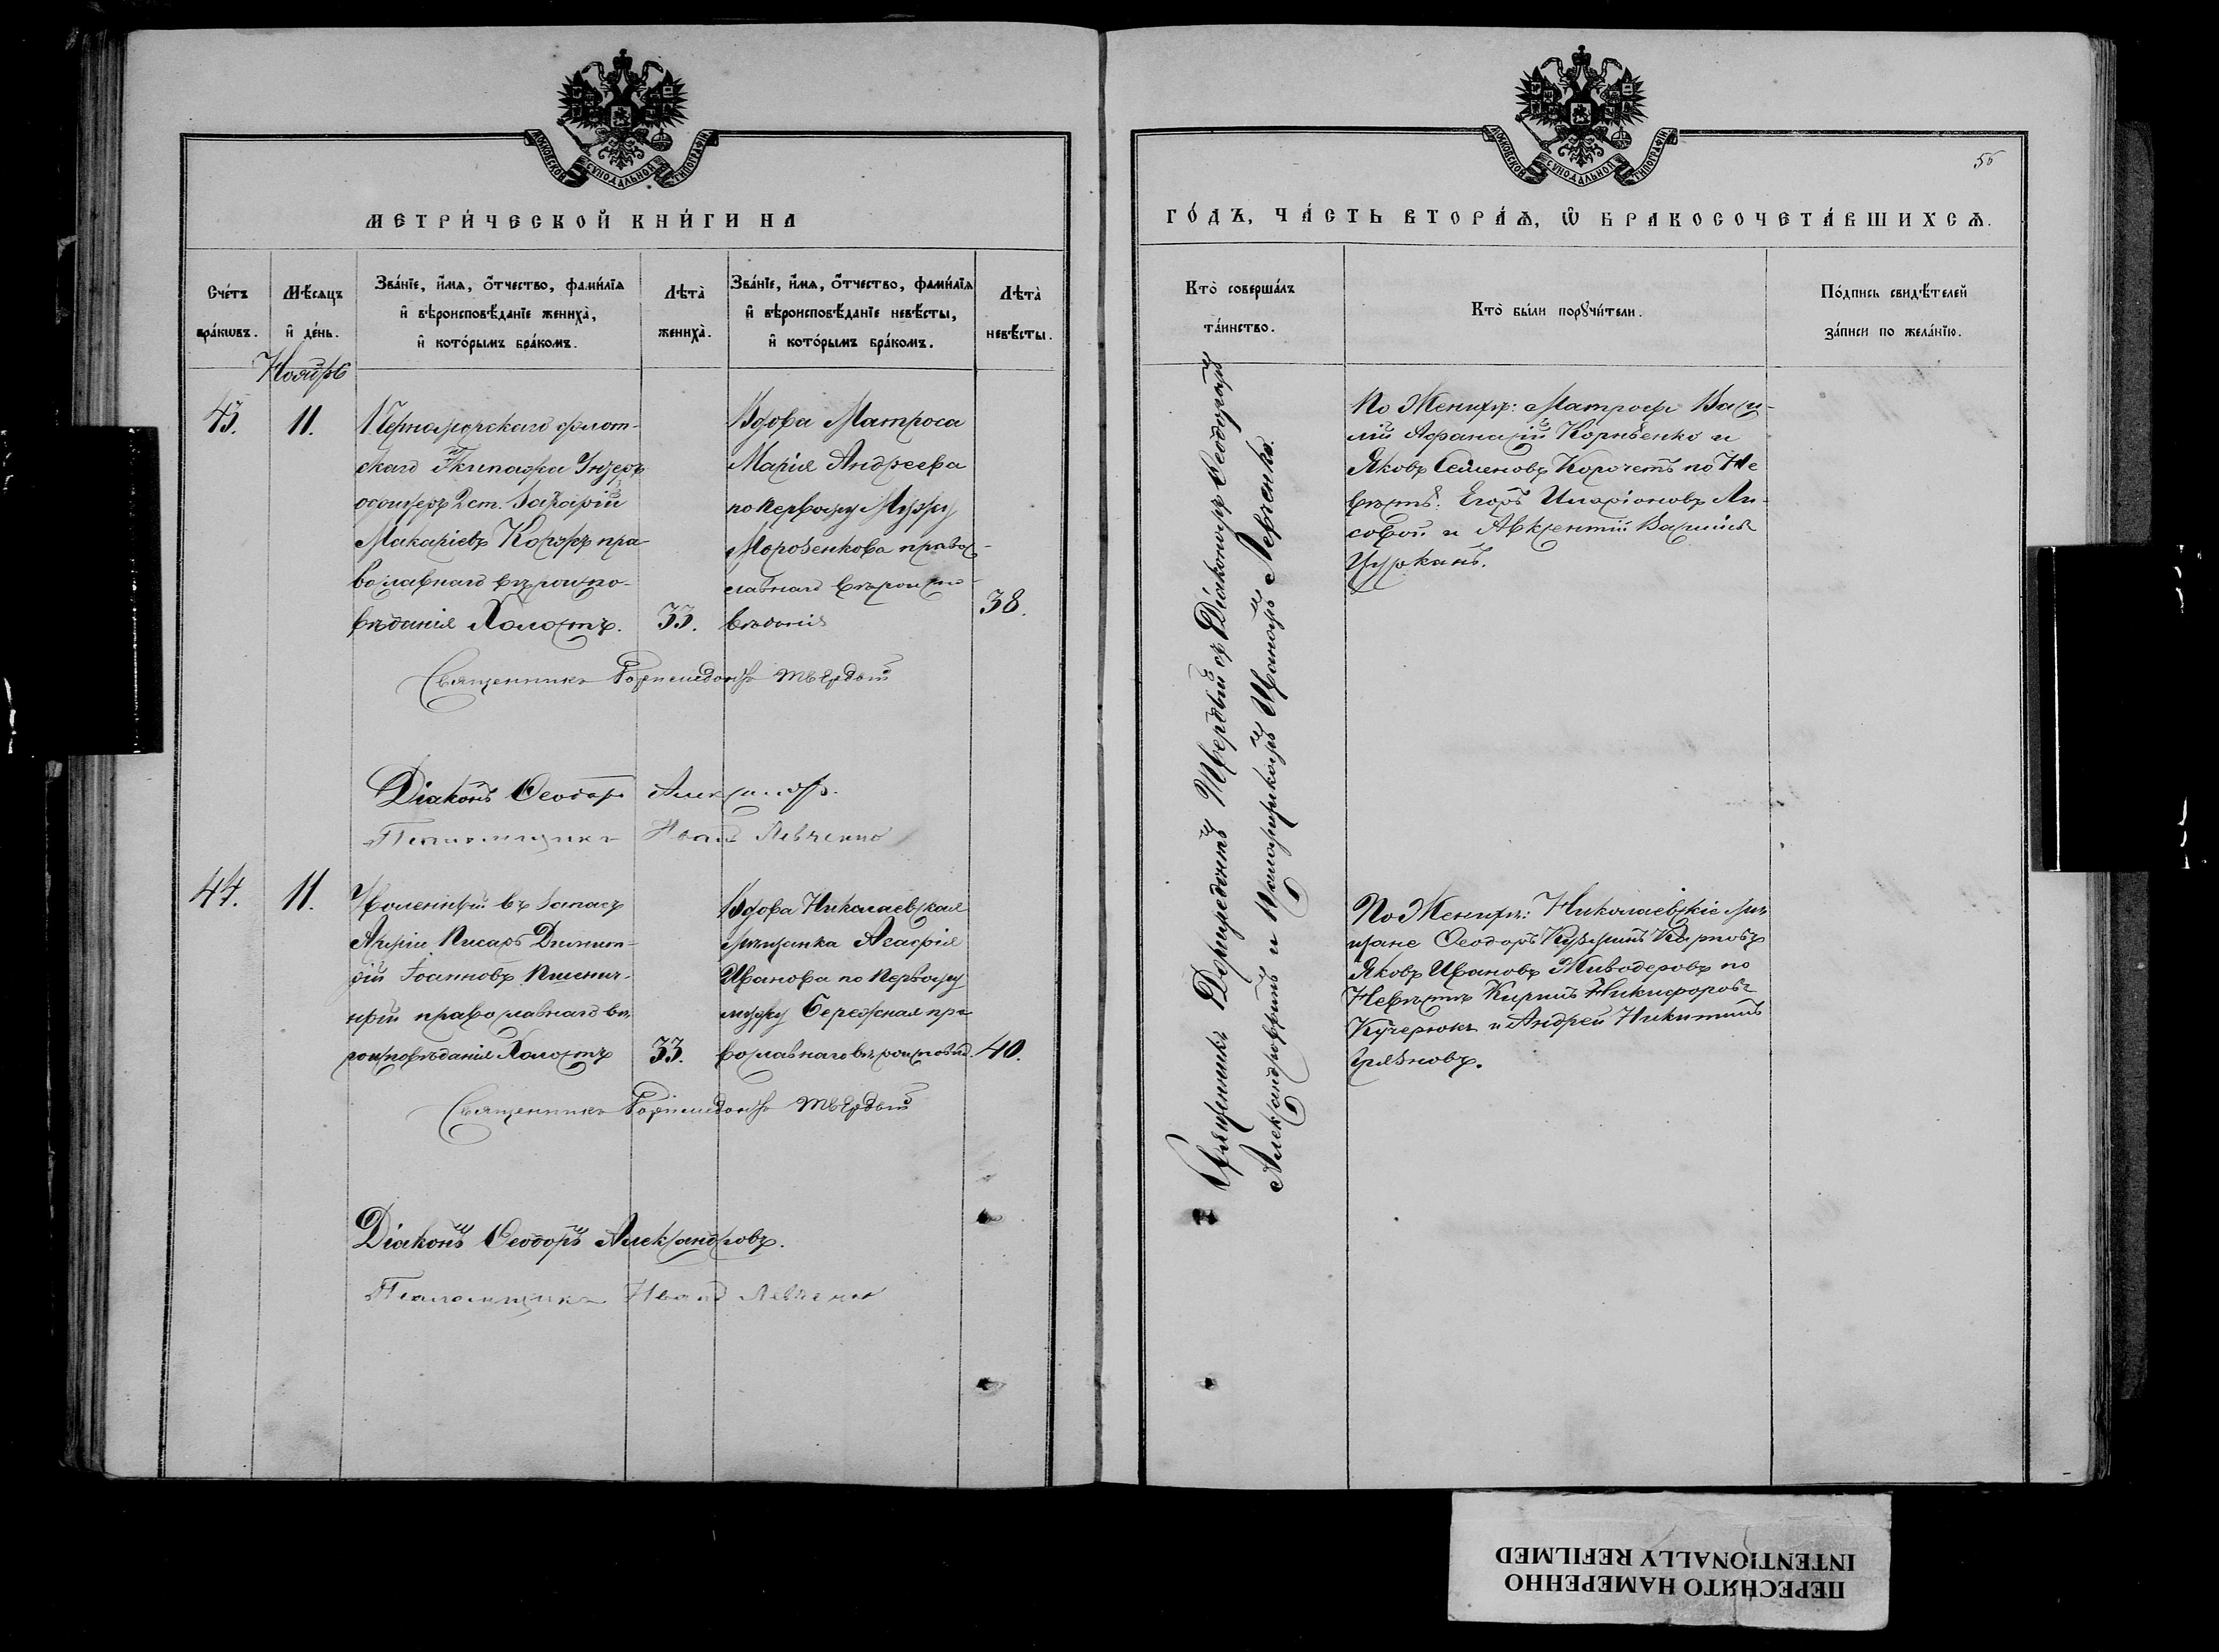 МОСКОВСКОЙ СѴНОДАЛЬНОЙ ТИПОГРАФІИ
МЕТРИ́ЧЕСКОЙ КНИ́ГИ НА
Сче́тъ бра́кѡвъ.
Мѣ́сяцъ и҆ де́нь.
Зва́нїе, и҆́мѧ, ѻ҆́тчество, фами́лїѧ
и҆ вѣроисповѣ́данїе жениха̀,
и҆ кото́рымъ бра́комъ.
Лѣта̀ жениха̀.
Зва́нїе, и҆́мѧ, ѻ҆́тчество, фами́лїѧ
и҆ вѣроисповѣ́данїе невѣ́сты,
и҆ кото́рымъ бра́комъ.
Лѣта̀ невѣ́сты.
Ноябрь
43.
11.
Черноморскаго флот-
скаго Экипажа Ундеръ
офицеръ 2 ст. Захарій
Макаріевъ пра-
вославнаго вѣроиспо-
вѣданія Холостъ.
33.
Вдова Матроса
Марія Андреева
по первому Мужу
Морозенкова правос-
лавнаго вѣроиспо-
вѣданія
38.
Священникъ Дормедонтъ Твердый
Діаконъ Ѳеодоръ Александровъ.
Псаломщикъ Иванъ Левченко
44.
11.
Уволенный въ запасъ
Арміи Писарь Димит-
рій Іоанновъ Пшенич-
ный православнаго вѣ-
роисповѣданія Холостъ
33.
Вдова Николаевская
мѣщанка Агафія
Иванова по первому
мужу Бережная пра
вославнаго вѣроисповѣд.
40.
Священникъ Дормедонтъ Твердый
Діаконъ Ѳеодоръ Александровъ.
Псаломщикъ Иванъ Левченко
МОСКОВСКОЙ СѴНОДАЛЬНОЙ ТИПОГРАФІИ
ГО́ДЪ, ЧА́СТЬ ВТОРА́Ѧ, Ѡ҆ БРАКОСОЧЕТА́ВШИХСѦ.
Кто̀ соверша́лъ
та́инство.
Кто̀ бы́ли порꙋчи́тели.
По́дпись свидѣ́телей
за́писи по жела́нїю.
Священникъ Дормедонтъ Твердый съ Діакономъ Ѳеодоромъ
Александровымъ и Псаломщикомъ Иваномъ Левченко.
По Женихѣ: Матросы Васи-
лій Афанасій Корніенко и
Яковъ Семеновъ по Не
вѣстѣ: Егоръ Иларіоновъ Ли-
совой и Авксентій Василіевъ
Цурканъ.
По Женихѣ: Николаевскіе мѣ
щане Ѳеодоръ Карповъ
Яковъ Ивановъ Живодеровъ по
Невѣстѣ Кирилъ Никифоровъ
Кучерюкъ и Андрей Никитинъ
Грязновъ.
ПЕРЕСНЯТО НАМЕРЕННО
INTENTIONALLY REFILMED